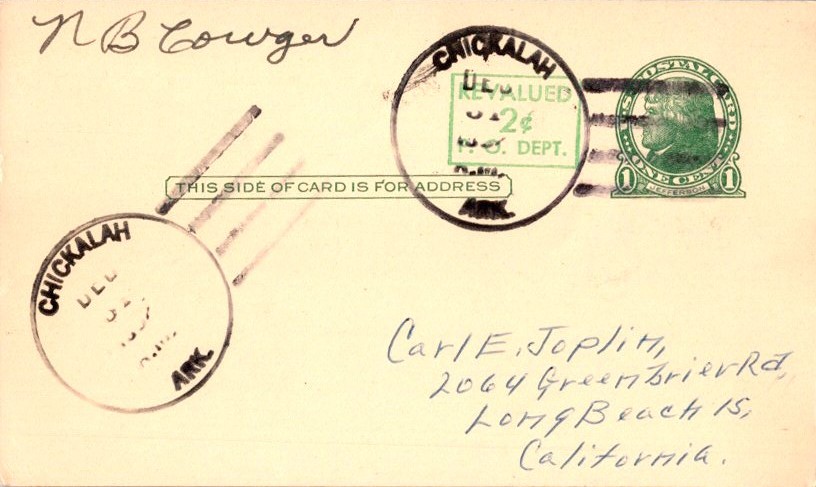 N B Cowger
CHICKALAH
DEC
31
ARK.
REVALUED
2¢
P. O. DEPT.
U.S. POSTAL CARD
ONE CENT
1 JEFFERSON 1
THIS SIDE OF CARD IS FOR ADDRESS
CHICKALAH
DEC
31
ARK.
Carl E. Joplin,
2064 Greenbrier Rd,
Long Beach 15,
California.